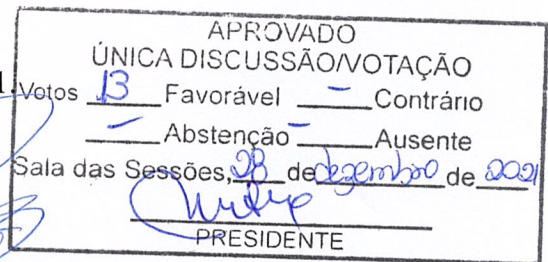 APROVADO
ÚNICA DISCUSSÃO/VOTAÇÃO
1. Votos 13 Favorável – Contrário
– Abstenção – Ausente
Sala das Sessões, 28 de dezembro de 2021
PRESIDENTE